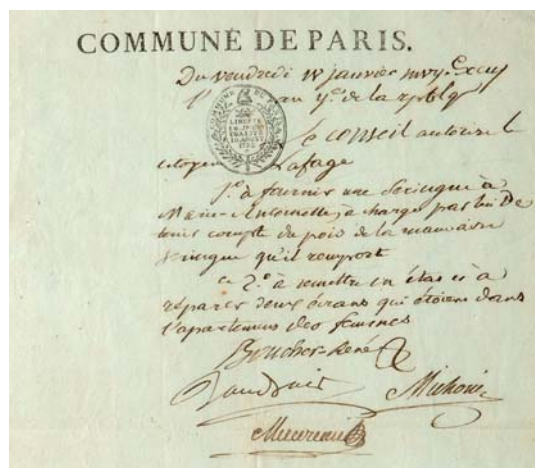 COMMUNE DE PARIS.
Du vendredi 18 janvier
l' au 2e. de la
COMMUNE DE PARIS
LIBERTÉ
ÉGALITÉ
1792
le conseil autorise le
citoyen Lafage
1°. à fournir une Seringue à
Marie-Antoinette, à charge par lui De
tenir compte du pois de la mauvaise
Seringue qu'il remport
2.° à remettre en état et à
réparer deux écrans qui étoient dans
l'apartement des femmes
Boucher-René
Michonis